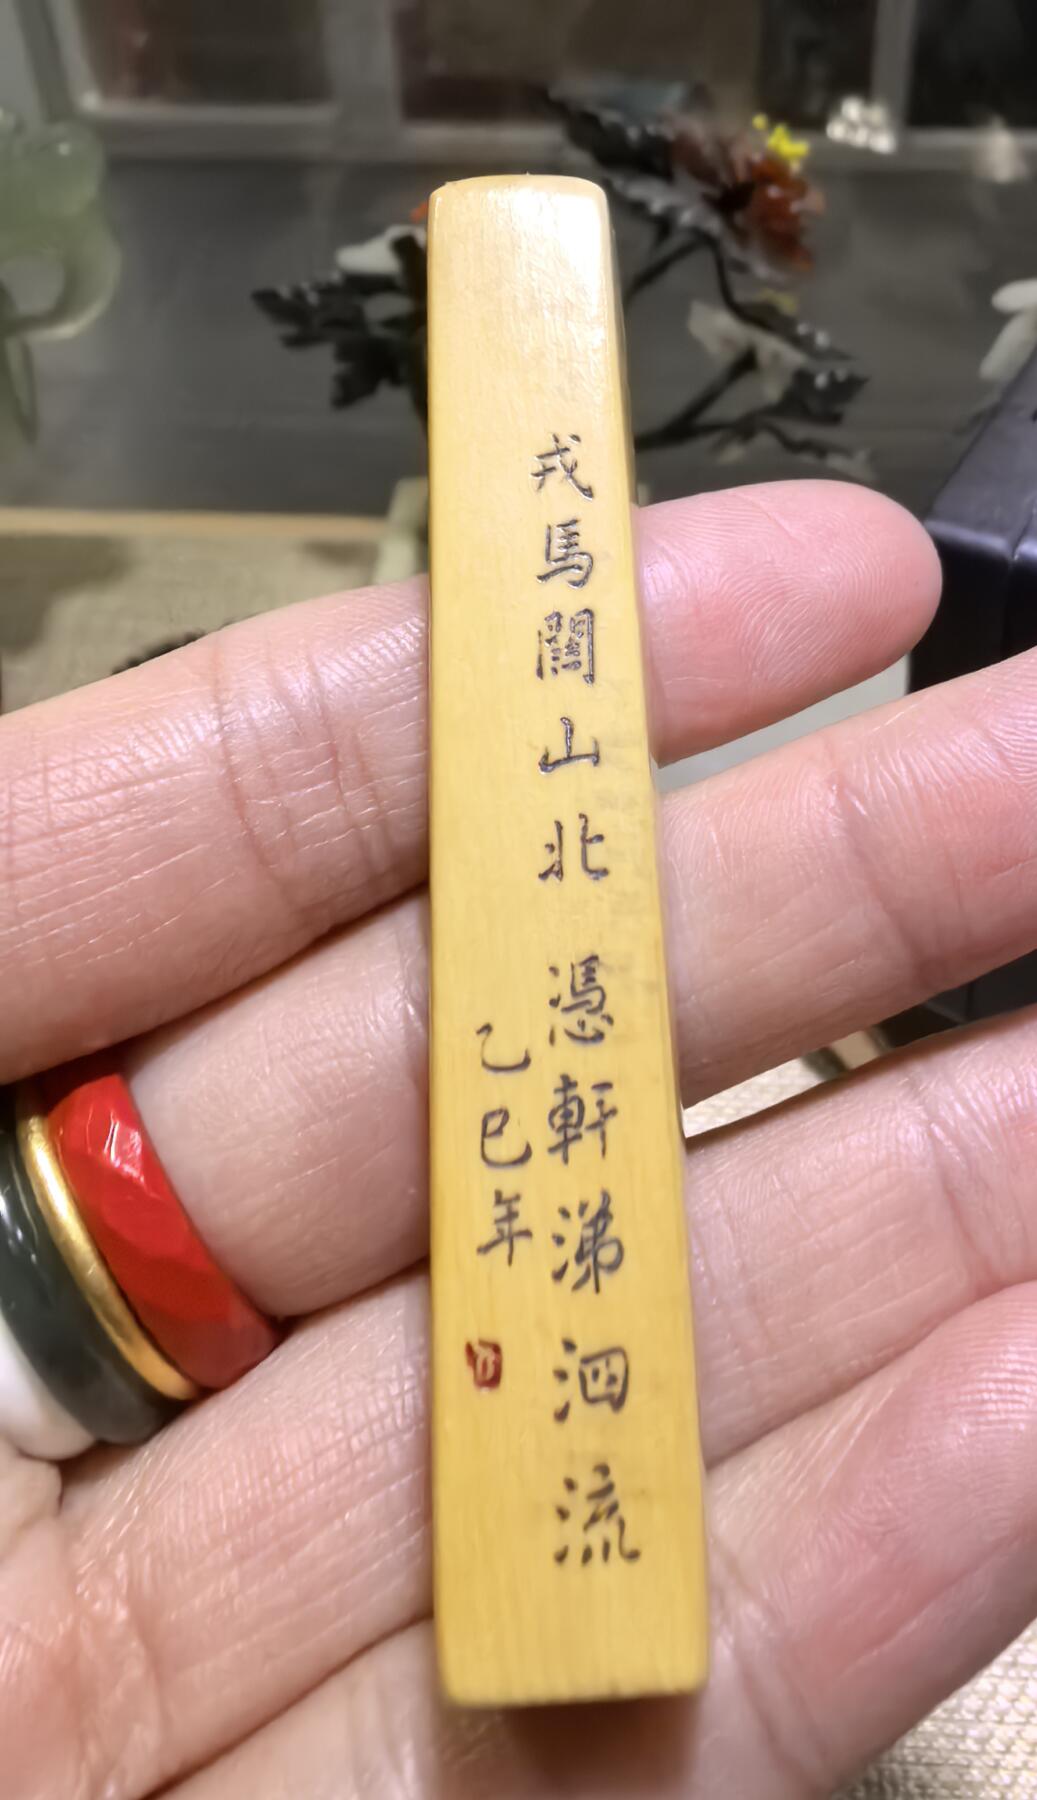 戎馬關山北憑軒涕泗流
乙巳年